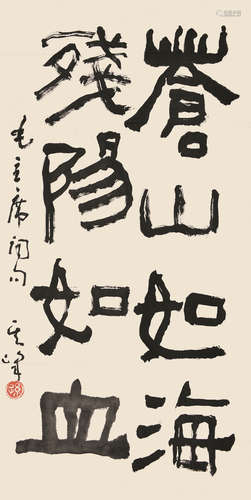 蒼山如海
殘陽如血
毛主席詞句
其峰